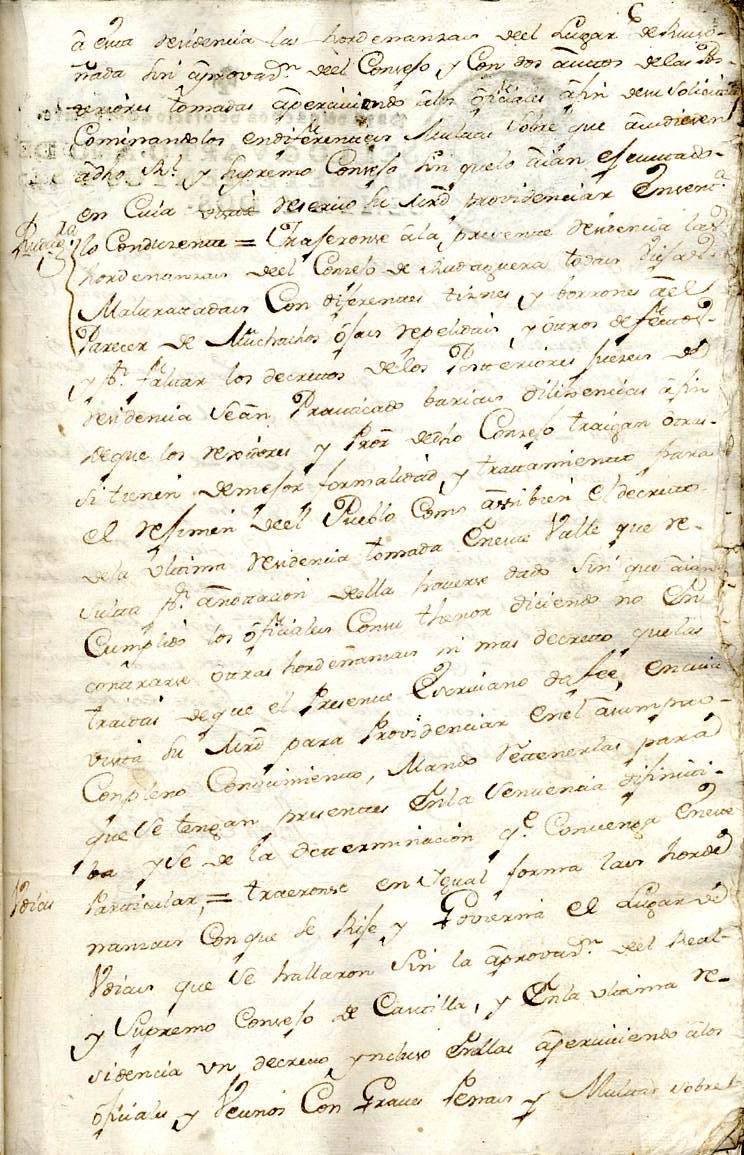 â esta residencia las hordenanzas deel Lugar de Ruiso-
ñada sin âprovaz.n deel Consejo, y Con dos âuttos de las Pos-
teriores tomadas âperciviendo âlos ôfiziales âfin de su solicitud
Cominandolos en diferentes Multas sobre que acudiesen
âdho Rl. y Supremo Consejo sin que lo âian ejecutado-
en Cuia vista reservo su Mrd providenciar Ensenta
lo Conduzente = Trajeronse âla presente residencia las
hordenanzas deel Consejo de Rudaguera todas
Maltratadas Con diferentes tintes, y borrones âel
Parecer de Muchachos ôjas repetidas y ôtras defectuos-
y pr. faltar los decretos de los Posteriores Juezes de
residencia seân Practicado barias dilixencias âfin
de que los rexidores y Pror dedho Consejo traigan ôtras-
si tienen de mejor formalidad, y tratamiento para
el rejimen deel Pueblo Como assibien el decreto
dela ultima residencia tomada Eneste Valle que re-
sulta pr. anotacion della haverse dado sin que âian
Cumplido los ôficiales Consu thenor diciendo no En
contrarse ôtras hordenanzas ni mas decreto que las
traidas de que el Presente Escrivano da fee, en cuia
vista su Mrd para Providenciar enel âsumpto
Conpleno Conocimiento, Mando retenerlas para
que se tengan presentes Enla Sentencia difiniti-
ba y se de la determinacion q.e Convenga Eneste
Udias Particular, = traeronse en igual forma las horde
nanzas Con que se Rije y Govierna el Lugar de
Udias que se hallaron sin la âprovaz.n deel Real
y Supremo Consejo de Castilla, y Enla ultima re-
sidencia un decreto yncluso Enellas âperciviendo âlos
ôficiales y Vecinos Con Graves Penas y Multas sobre